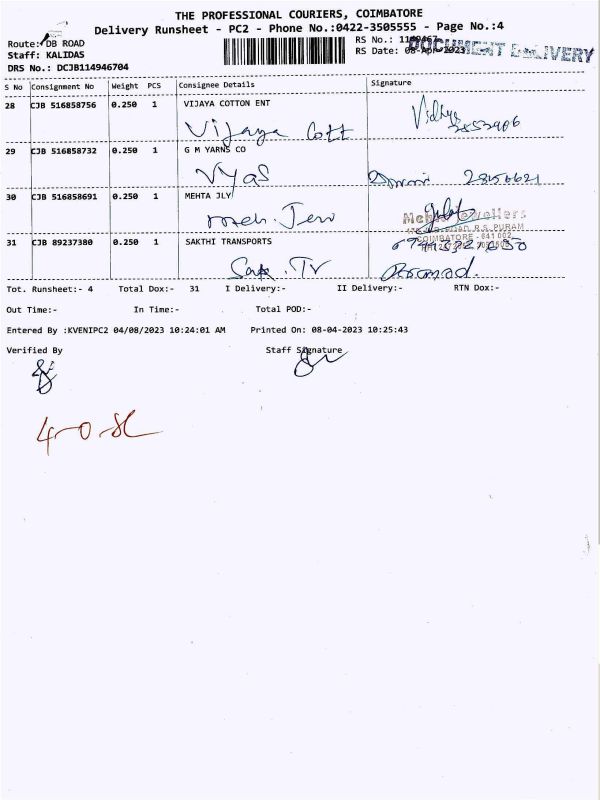 THE PROFESSIONAL COURIERS, COIMBATORE
Delivery Runsheet - PC2 - Phone No.:0422-3505555 - Page No.:4
Route: DB ROAD
Staff: KALIDAS
DRS No.: DCJB114946704
RS No.:
RS Date: 08-Apr-2023
DOCUMENT DELIVERY
S No Consignment No Weight PCS Consignee Details Signature
28 CJB 516858756 0.250 1 VIJAYA COTTON ENT
Vijaya Cott
Vidhya
29 CJB 516858732 0.250 1 G M YARNS CO
Vyas
30 CJB 516858691 0.250 1 MEHTA JLY
meh. Jew
Mehta Jewellers
R.S. PURAM
COIMBATORE - 641 002
31 CJB 89237380 0.250 1 SAKTHI TRANSPORTS
Sak. Tr
Tot. Runsheet:- 4 Total Dox:- 31 I Delivery:- II Delivery:- RTN Dox:-
Out Time:- In Time:- Total POD:-
Entered By :KVENIPC2 04/08/2023 10:24:01 AM Printed On: 08-04-2023 10:25:43
Verified By Staff Signature